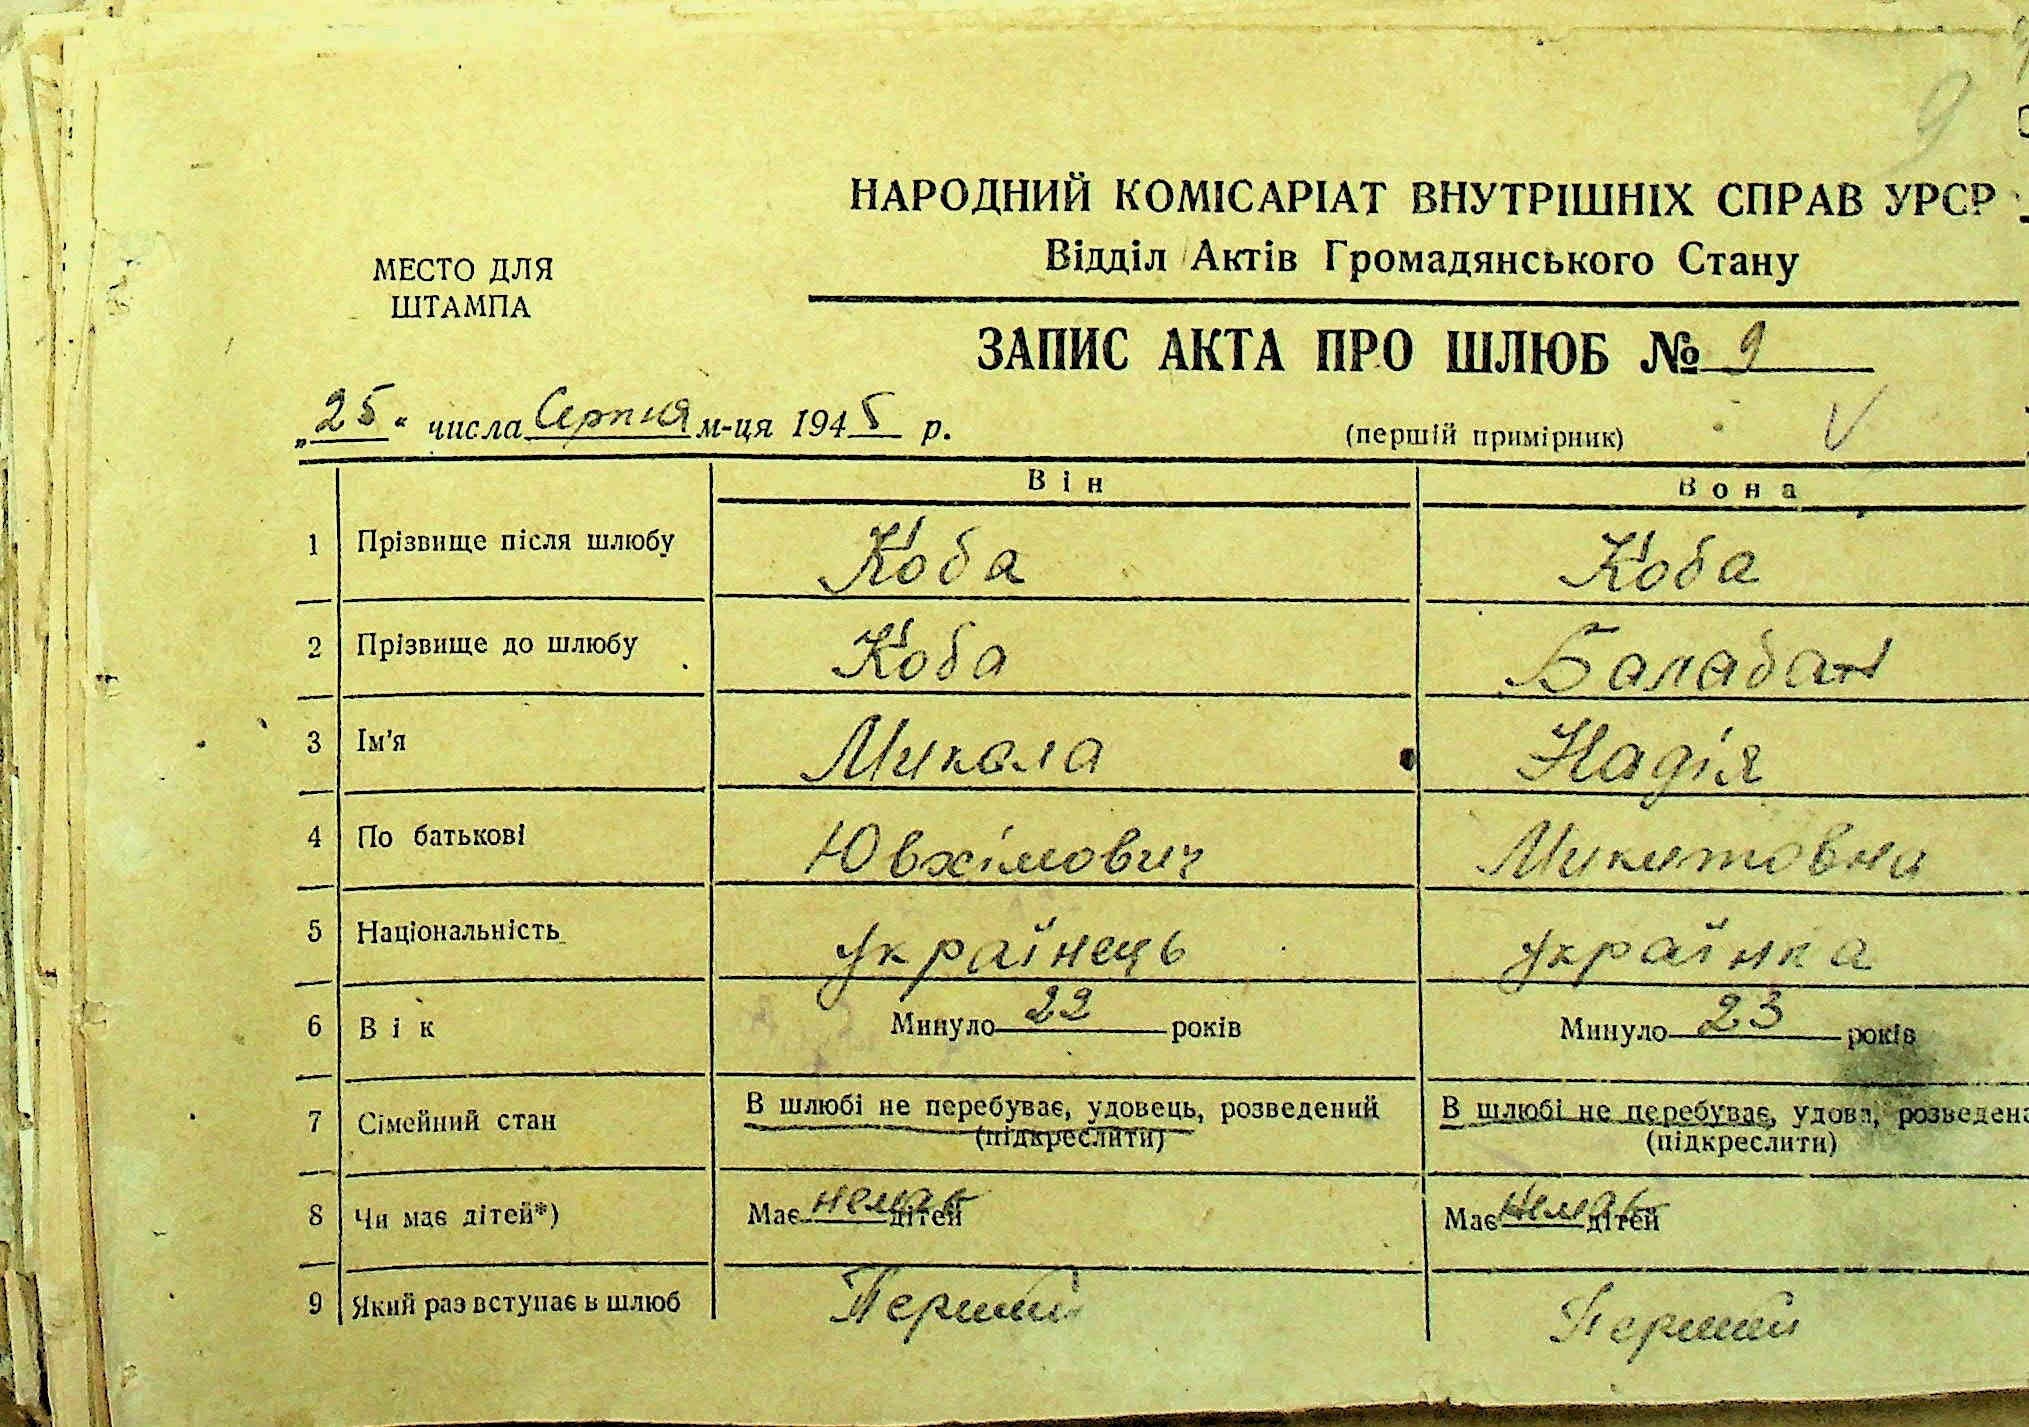 9
НАРОДНИЙ КОМІСАРІАТ ВНУТРІШНІХ СПРАВ УРСР
Відділ Актів Громадянського Стану
МЕСТО ДЛЯ
ШТАМПА
ЗАПИС АКТА ПРО ШЛЮБ № 9
„25“ числа Серпня м-ця 1945 р.
(першій примірник) V
Він Вона
1 Прізвище після шлюбу Коба Коба
2 Прізвище до шлюбу Коба Балабан
3 Ім'я Микола Надія
4 По батькові Ювхімович Микитовна
5 Національність українець українка
6 Вік Минуло 22 років Минуло 23 років
7 Сімейний стан В шлюбі не перебуває, удовець, розведений В шлюбі не перебуває, удова, розведена
(підкреслити) (підкреслити)
8 Чи має дітей*) Має немає дітей Має немає дітей
9 Який раз вступає в шлюб Перший Перший